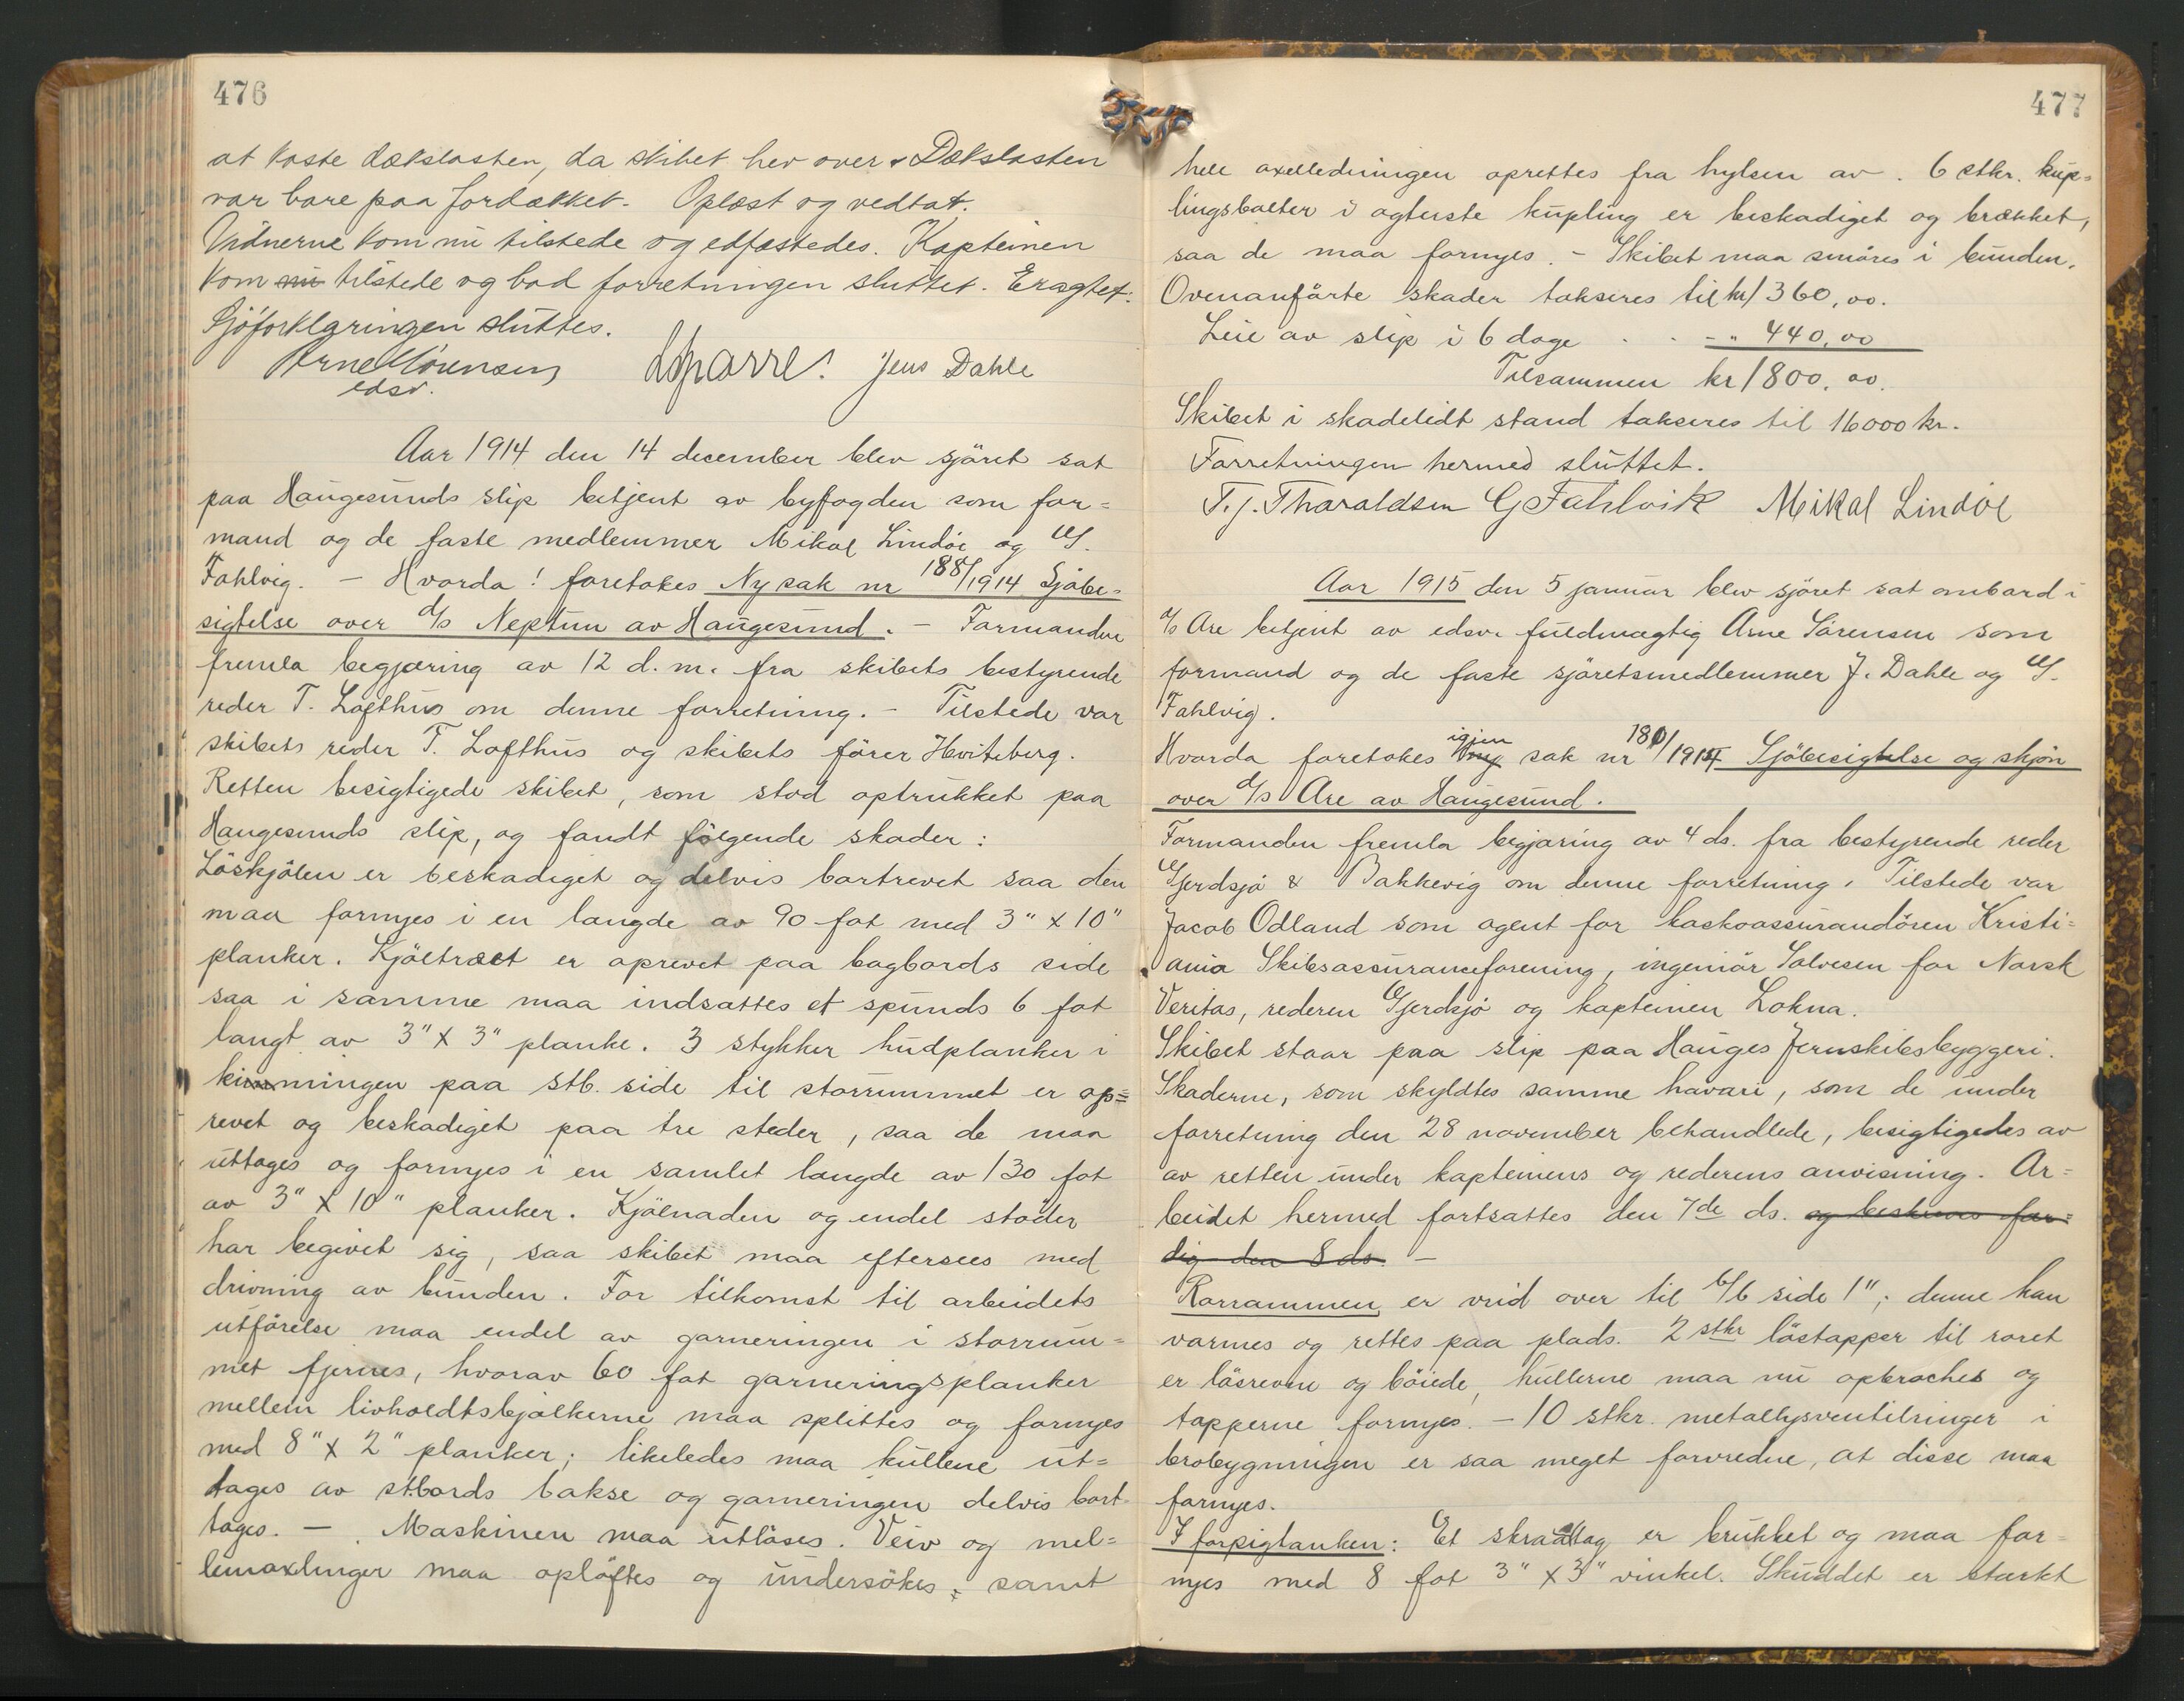 476
at kaste dækslasten, da skibet hev over. Dækslasten
var bare paa fordækket. Oplæst og vedtat.
Vidnerne kom nu tilstede og edfæstedes. Kapteinen
kom nu tilstede og bad forretningen sluttet. Eragtet:
Sjöforklaringen sluttes.
Arne Sörensen LSparre. Jens Dahle
edsv.
Aar 1914 den 14 december blev sjöret sat
paa Haugesunds slip betjent av byfogden som for=
mand og de faste medlemmer Mikal Lindöe og G.
Fahlvig. — Hvorda! foretokes Ny sak nr 188/1914 Sjöbe=
sigtelse over d/s Neptun av Haugesund. — Formanden
fremla begjæring av 12 d.m. fra skibets bestyrende
reder T. Lofthus om denne forretning. — Tilstede var
skibets reder T. Lofthus og skibets förer Hviteberg.
Retten besigtigede skibet, som stod optrukket paa
Haugesunds slip, og fandt fölgende skader:
Löskjölen er beskadiget og delvis bortrevet saa den
maa fornyes i en længde av 90 fot med 3" x 10"
planker. Kjöltræet er oprevet paa bagbords side
saa i samme maa indsættes et spunds 6 fot
langt av 3" x 3" planke. 3 stykker hudplanker i
kimmingen paa stb. side til storrummet er op=
revet og beskadiget paa tre steder, saa de maa
uttages og fornyes i en samlet længde av 130 fot
av 3" x 10" planker. Kjölnaden og endel stöder
har begivet sig, saa skibet maa eftersees med
drivning av bunden. For tilkomst til arbeidets
utförelse maa endel av garneringen i storrum=
met fjernes, hvorav 60 fot garneringsplanker
mellem livholdtsbjælkerne maa splittes og fornyes
med 8" x 2" planker; likeledes maa kullene ut=
tages av stbords bakse og garneringen delvis bort-
tages. — Maskinen maa utlöses. Veiv og mel=
lemaxlinger maa oplöftes og undersökes; samt
477
hele axelledningen oprettes fra hylsen av. 6 stkr. kup=
lingsbolter i agterste kupling er beskadiget og brækket,
saa de maa fornyes. — Skibet maa smöres i bunden.
Ovenanförte skader takseres til kr 1360,00.
Leie av slip i 6 dage . . -" 440,00
Tilsammen kr 1800.00.
Skibet i skadelidt stand takseres til 16000 kr.
Forretningen hermed sluttet.
T. J. Tharaldsen G Fahlvik Mikal Lindöe
Aar 1915 den 5 januar blev sjöret sat ombord i
d/s Are betjent av edsv. fuldmægtig Arne Sörensen som
formand og de faste sjöretsmedlemmer J. Dahle og G.
Fahlvig.
igjen
Hvorda foretokes ny sak nr 180/1914 Sjöbesigtelse og skjön
over d/s Are av Haugesund.
Formanden fremla begjæring av 4 ds. fra bestyrende reder
Gjerdsjö & Bakkevig om denne forretning. Tilstede var
Jacob Odland som agent for kaskoassurandören Kristi=
ania Skibsassuranceforening, ingeniör Salvesen for Norsk
Veritas, rederen Gjerdsjö og kapteinen Lokna.
Skibet staar paa slip paa Hauges Jernskibsbyggeri.
Skaderne, som skyldtes samme havari, som de under
forretning den 28 november behandlede, besigtigedes av
av retten under kapteinens og rederens anvisning. Ar=
beidet hermed fortsattes den 7de ds. og beskreves fær=
dig den 8 ds. —
Rorrammen er vrid over til b/b side 1"; denne kan
varmes og rettes paa plads. 2 stkr löstapper til roret
er lösrevne og böiede, hullerne maa nu opbroches og
tapperne fornyes. — 10 stkr. metallysventilringer i
brobygningen er saa meget forvredne, at disse maa
fornyes.
I forpigtanken: Et skraastag er brukket og maa for=
nyes med 8 fot 3" x 3" vinkel. Skuddet er stærkt